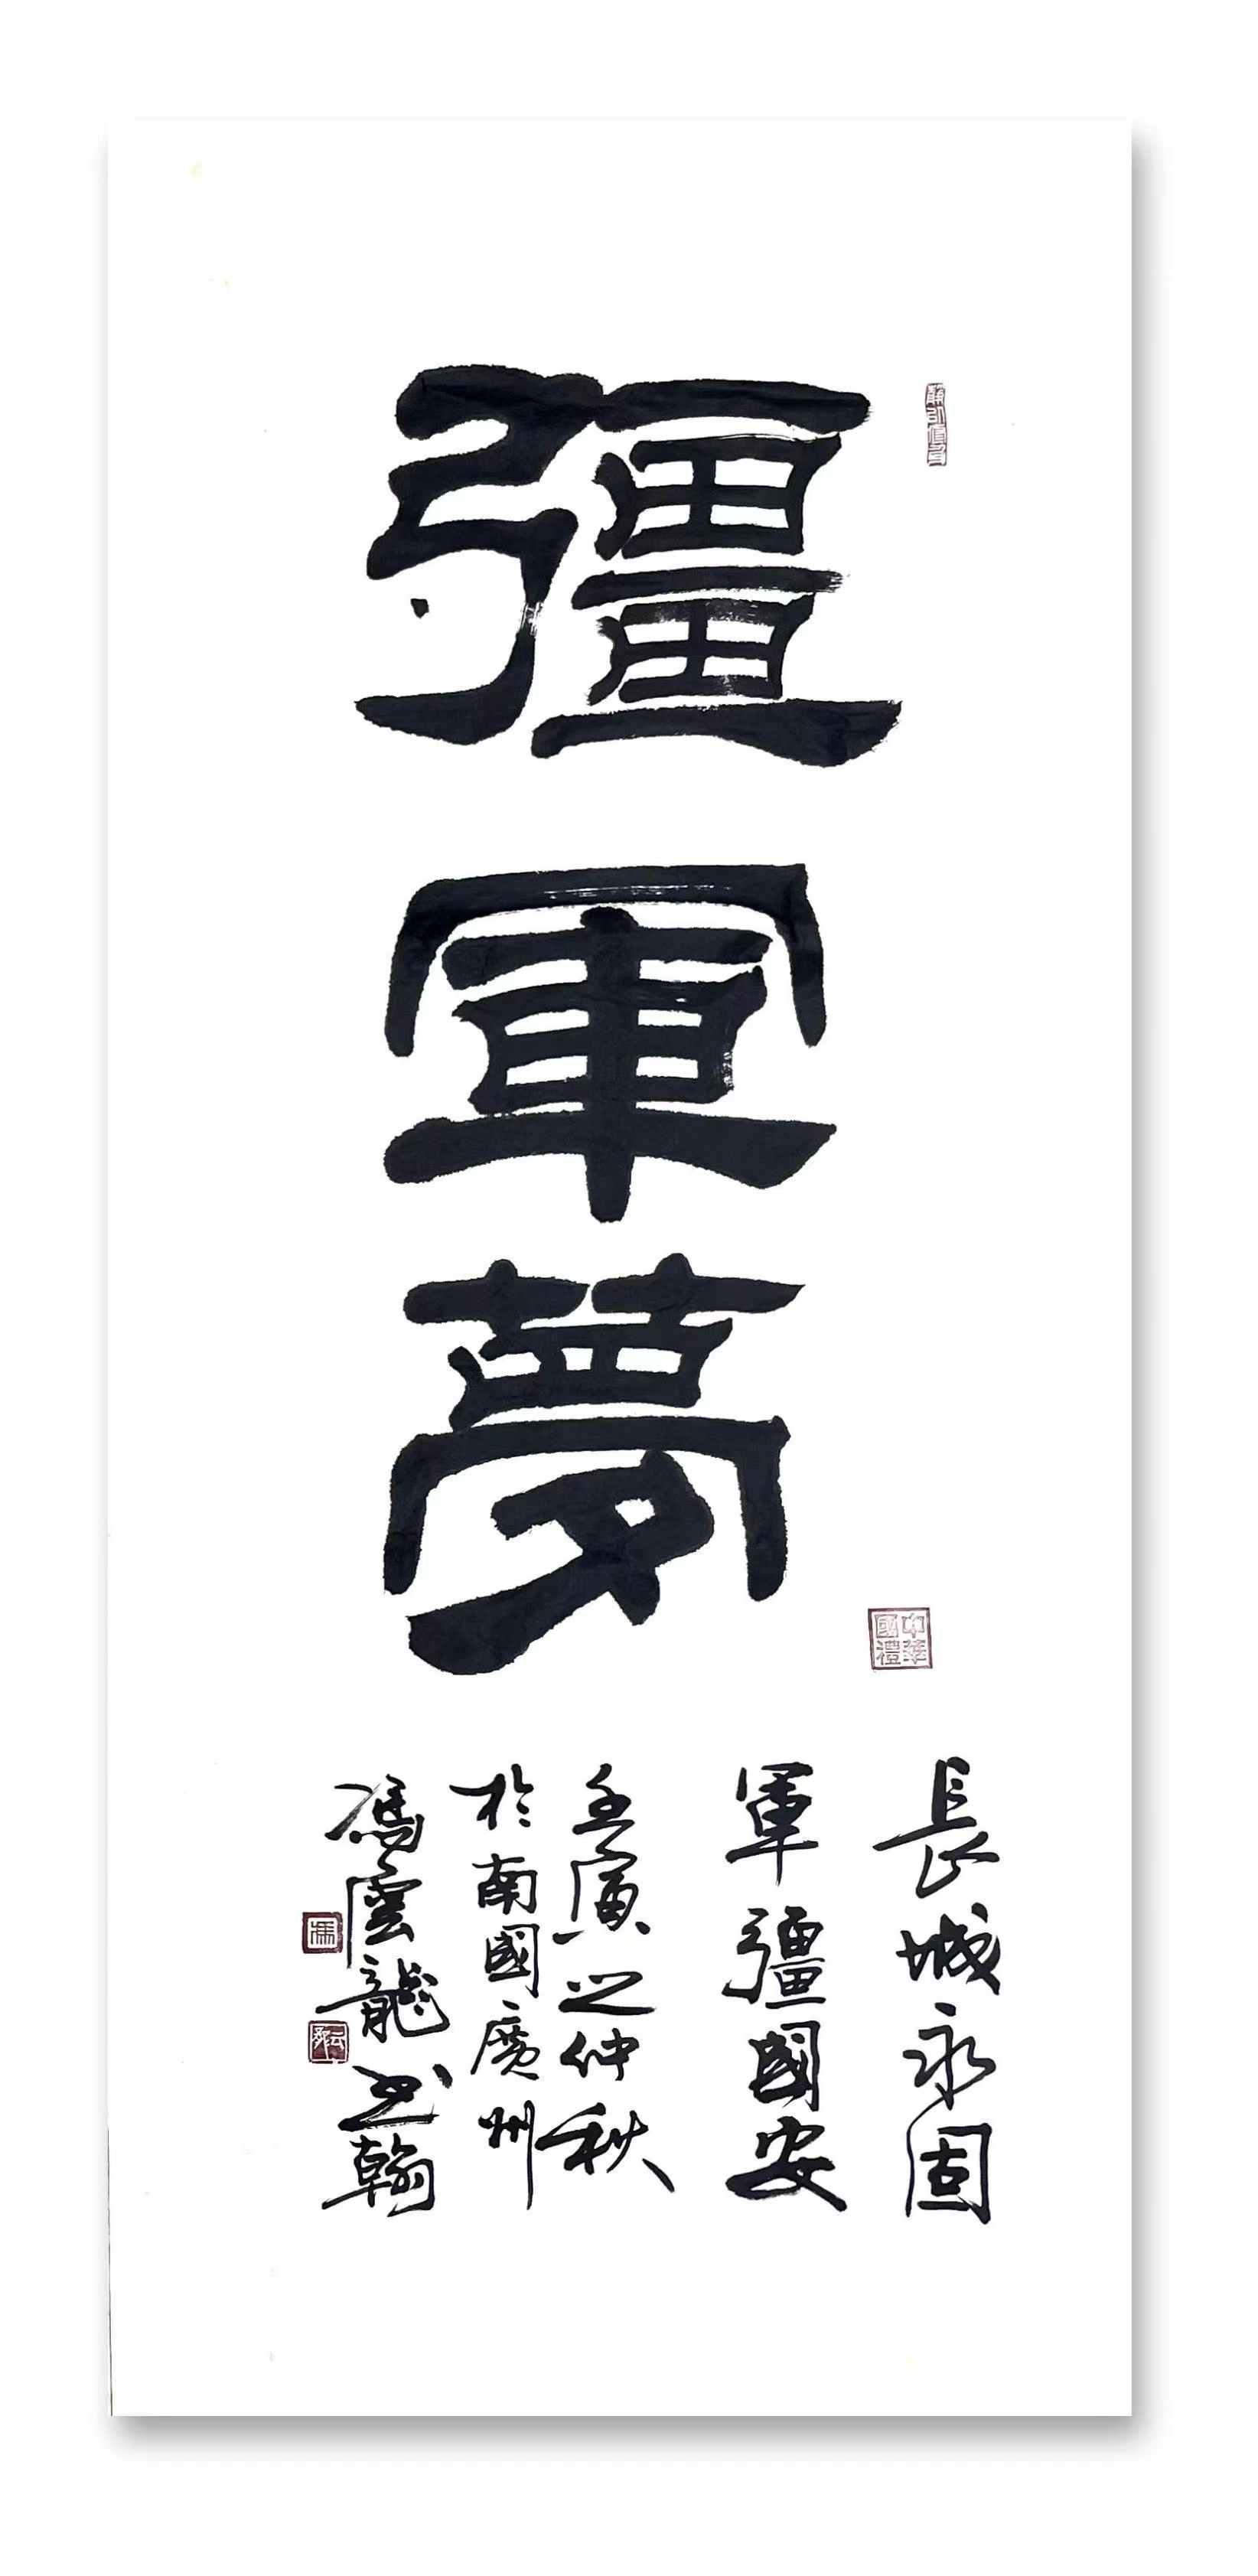 彊軍夢
長城永固
軍彊國安
壬寅之仲秋
於南國廣州
馮雲龍書翰
中華國禮
馮